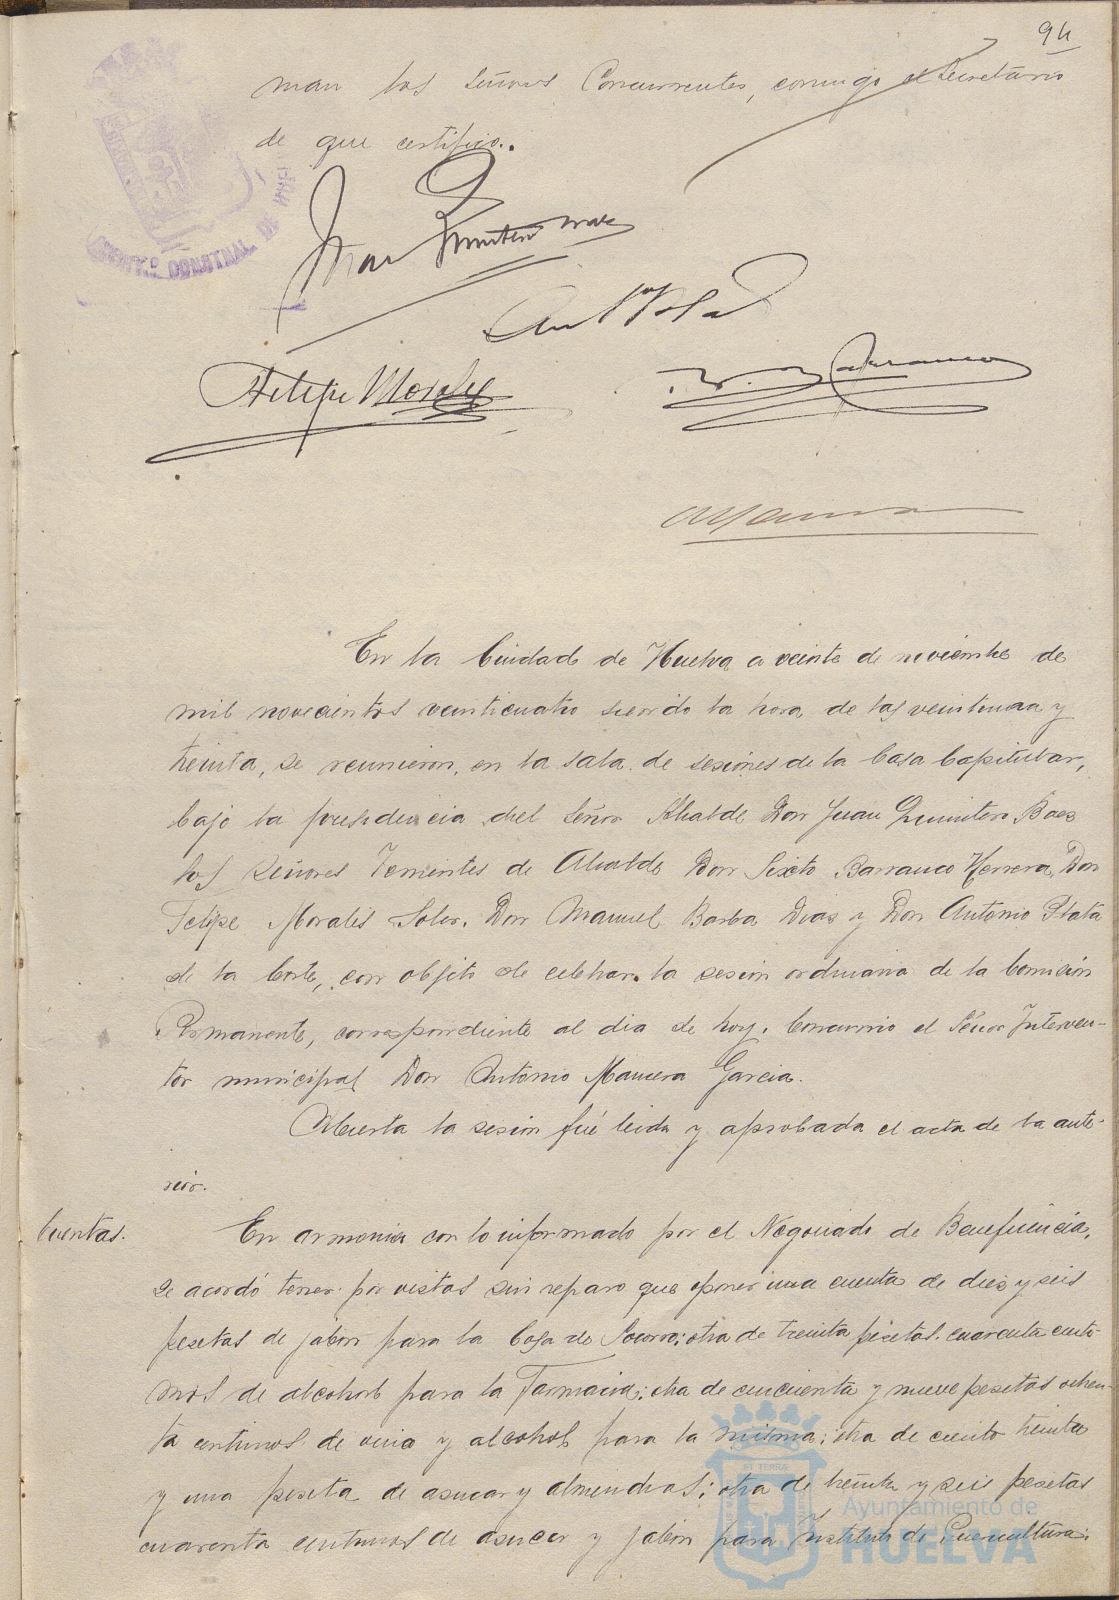 94
man los Señores Concurrentes, conmigo el Secretario
de que certifico.
Juan Quintero Baez
Ant Plata
Felipe Morales
S. Barranco
AYUNTº CONSTNAL DE
En la Ciudad de Huelva a veinte de noviembre de
mil novecientos veinticuatro siendo la hora de las veintiuna y
treinta, se reunieron, en la sala de sesiones de la Casa Capitular,
bajo la presidencia del Señor Alcalde Don Juan Quintero Baez
los Señores Tenientes de Alcalde Don Sixto Barranco Herrera, Don
Felipe Morales Soler, Don Manuel Barba Diaz y Don Antonio Plata
de la Corte, con objeto de celebrar la sesion ordinaria de la Comision
Permanente, correspondiente al dia de hoy. Concurrio el Señor Interven-
tor municipal Don Antonio Mancera Garcia.
Abierta la sesion fué leida y aprobada el acta de la ante-
rior.
Cuentas.
En armonia con lo informado por el Negociado de Beneficencia,
se acordó tener por vistas sin reparo que oponer una cuenta de diez y seis
pesetas de jabon para la Casa de Socorro; otra de treinta pesetas cuarenta centi-
mos de alcohol para la Farmacia; otra de cincuenta y nueve pesetas ochen-
ta centimos de vino y alcohol para la misma; otra de ciento treinta
y una peseta de azucar y almendras; otra de treinta y seis pesetas
cuarenta centimos de azucar y jabon para Instituto de Puericultura;
ET TERRÆ
Ayuntamiento de
HUELVA